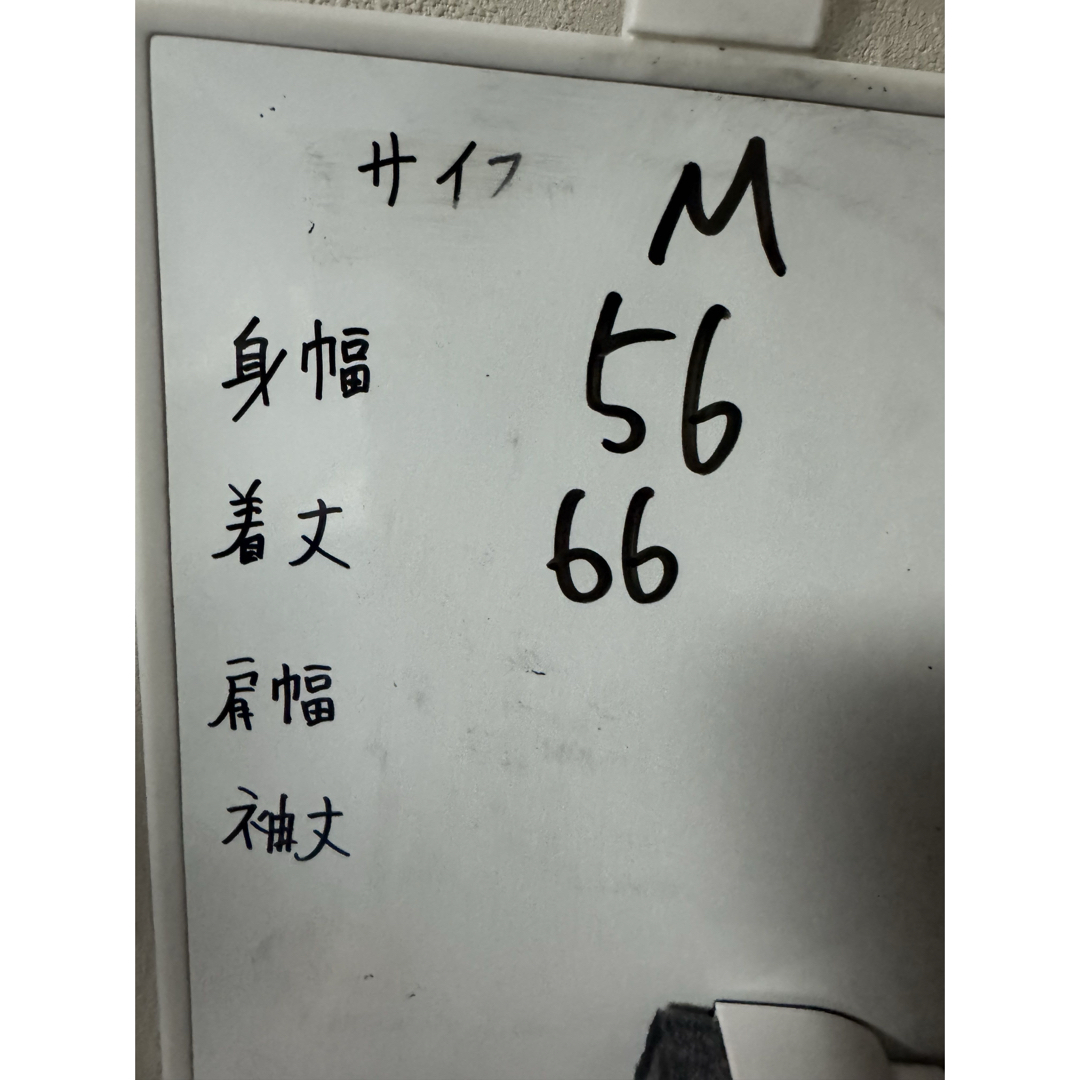 サイフ M
身幅 56
着丈 66
肩幅
袖丈